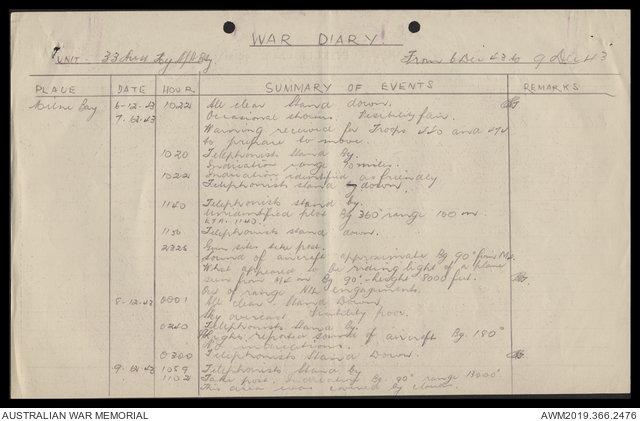 WAR DIARY
UNIT 33 Aust Hy A/A Bty From 6 Dec 43 to 9 Dec 43
PLACE DATE HOUR SUMMARY OF EVENTS REMARKS
Milne Bay 6-12-43 1022 All clear Stand down.
7-12-43 Occasional showers. Visibility fair.
Warning received for Troops 440 and 474
to prepare to move.
1020 Telephonists stand by.
Indication range 70 miles.
1022 Indication identified as friendly
Telephonists stand down.
1140 Telephonists stand by.
Unidentified plot Bg 360° range 100 m
1150 Telephonists stand down.
2325 Gun sites take post.
Sound of aircraft approximate Bg 90° from
What appeared to be riding light of a plane
seen from M4 on Bg 90° - height 8000 feet.
Out of range Nil engagements.
8-12-43 0001 All clear. Stand Down
Sky overcast Visibility poor.
0240 Telephonists stand by.
reported sound of aircraft Bg 180°
No indications.
0300 Telephonists Stand Down.
9-12-43 1059 Telephonists stand by
1102 Take post. Indication Bg. 90° range 13000
This area was covered by cloud.
AUSTRALIAN WAR MEMORIAL AWM2019.366.2476